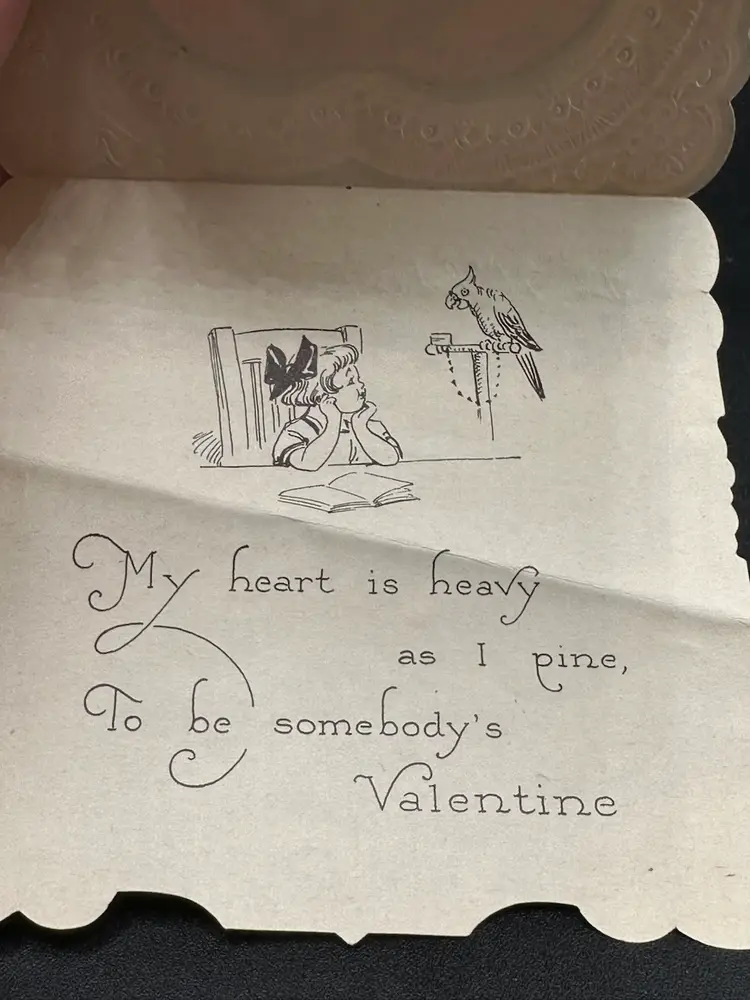 My heart is heavy
as I pine,
To be somebody's
Valentine